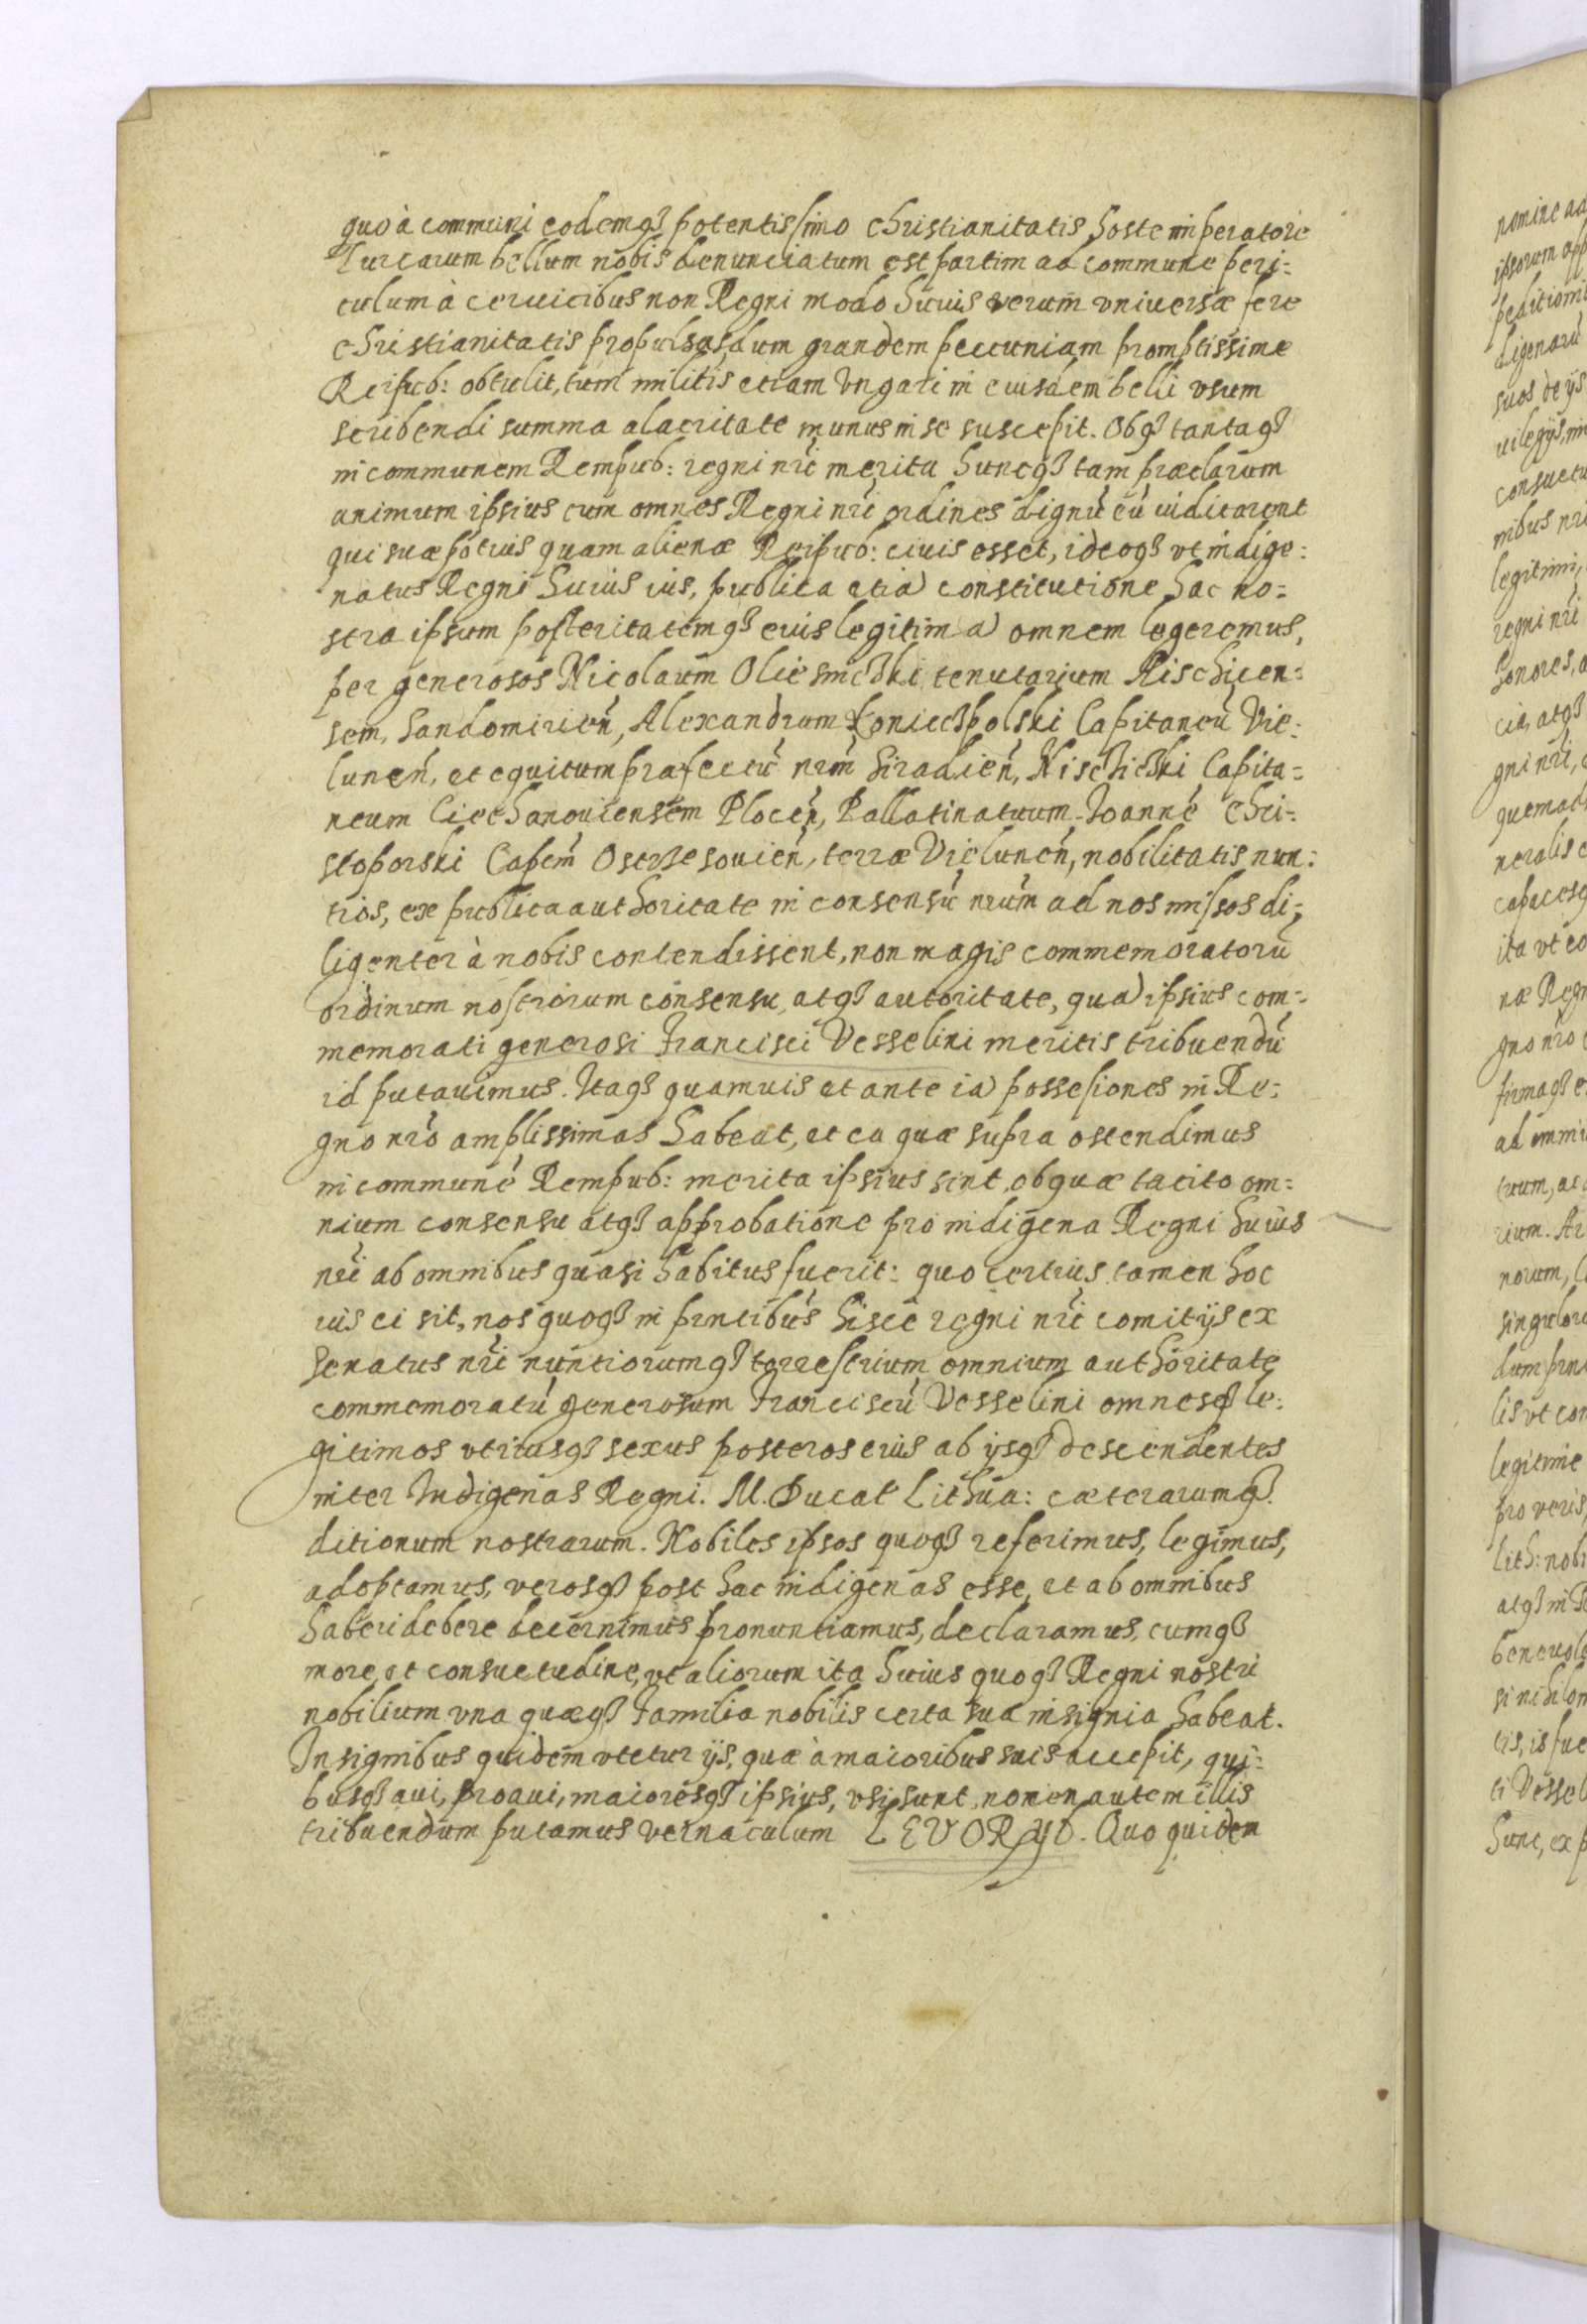 quo à communi eodemq3 potentissimo christianitatis hoste imperatore
Turcarum bellum nobis denunciatum est partim ad commune peri=
culum à ceruicibus non Regni modo huius verum vniversæ fere
christianitatis propulsandum grandem pecuniam promptissime
Reipub: obtulit, tum militis etiam Vngari in eiusdem belli vsum
scribendi summa alacritate munus in se suscepit. Obq3 tantaq3
in communem Rempub: regni nri merita huncq3 tam præclarum
animum ipsius cum omnes Regni nri ordines dignū eū iudicarent
qui suæ potius quam alienæ Reipub: ciuis esset, ideoq3 vt indige=
natus Regni huius ius, publica etiā constitutione hac no=
stra ipsum posteritatemq3 eius legitimā omnem legeremus,
per generosos Nicolaum Oliesnicski tenutarium Rischicen=
sem, Sandomirień, Alexandrum Koniecspolski Capitaneū Vie=
lunen, et equitum præfectū nrm Siradień, Nischicski Capita=
neum Ciechanouiensem Plocen, Pallatinatuum. Joanne Chri=
stoporski Capem Ostrsesouień, terræ Vielunen, nobilitatis nun=
tios, ex publica authoritate in consensū nrum ad nos missos di=
ligenter à nobis contendissent, non magis commemoratorū
ordinum nostrorum consensu, atq3 autoritate, quā ipsius com=
memorati generosi Francisci Vesselini meritis tribuendū
id putauimus. Itaq3 quamuis et ante iā possesiones in Re=
gno nro amplissimas habeat, et ea quæ supra ostendimus
in commune Rempub: merita ipsius sint, ob quæ tacito om=
nium consensu atq3 approbatione pro indigena Regni huius
nri ab omnibus quasi habitus fuerit: quo certius tamen hoc
ius ei sit, nos quoq3 in pntibus hisce regni nri comitijs ex
Senatus nri nuntiorumq3 terrestrium omnium authoritate
commemoratū generosum Franciscū Vesselini omnesq3 le=
gitimos vtriusq3 sexus posteros eius ab ijsq3 descendentes
inter Indigenas Regni. M. Ducat Lithua: cæterarumq3
ditionum nostrarum. Nobiles ipsos quoq3 referimus, legimus,
adoptamus, verosq3 post hac indigenas esse, et ab omnibus
haberi debere decernimus pronuntiamus, declaramus, cumq3
more, et consuetudine, vt aliorum ita huius quoq3 Regni nostri
nobilium vna quæq3 Familia nobilis certa sua insignia habeat.
Insignibus quidem vtetur ijs, quæ à maioribus suis accepit, qui=
busq3 aui, proaui, maioresq3 ipsius, vsi sunt, nomen autem illis
tribuendum putamus vernaculum LEVORYD. Quo quidem